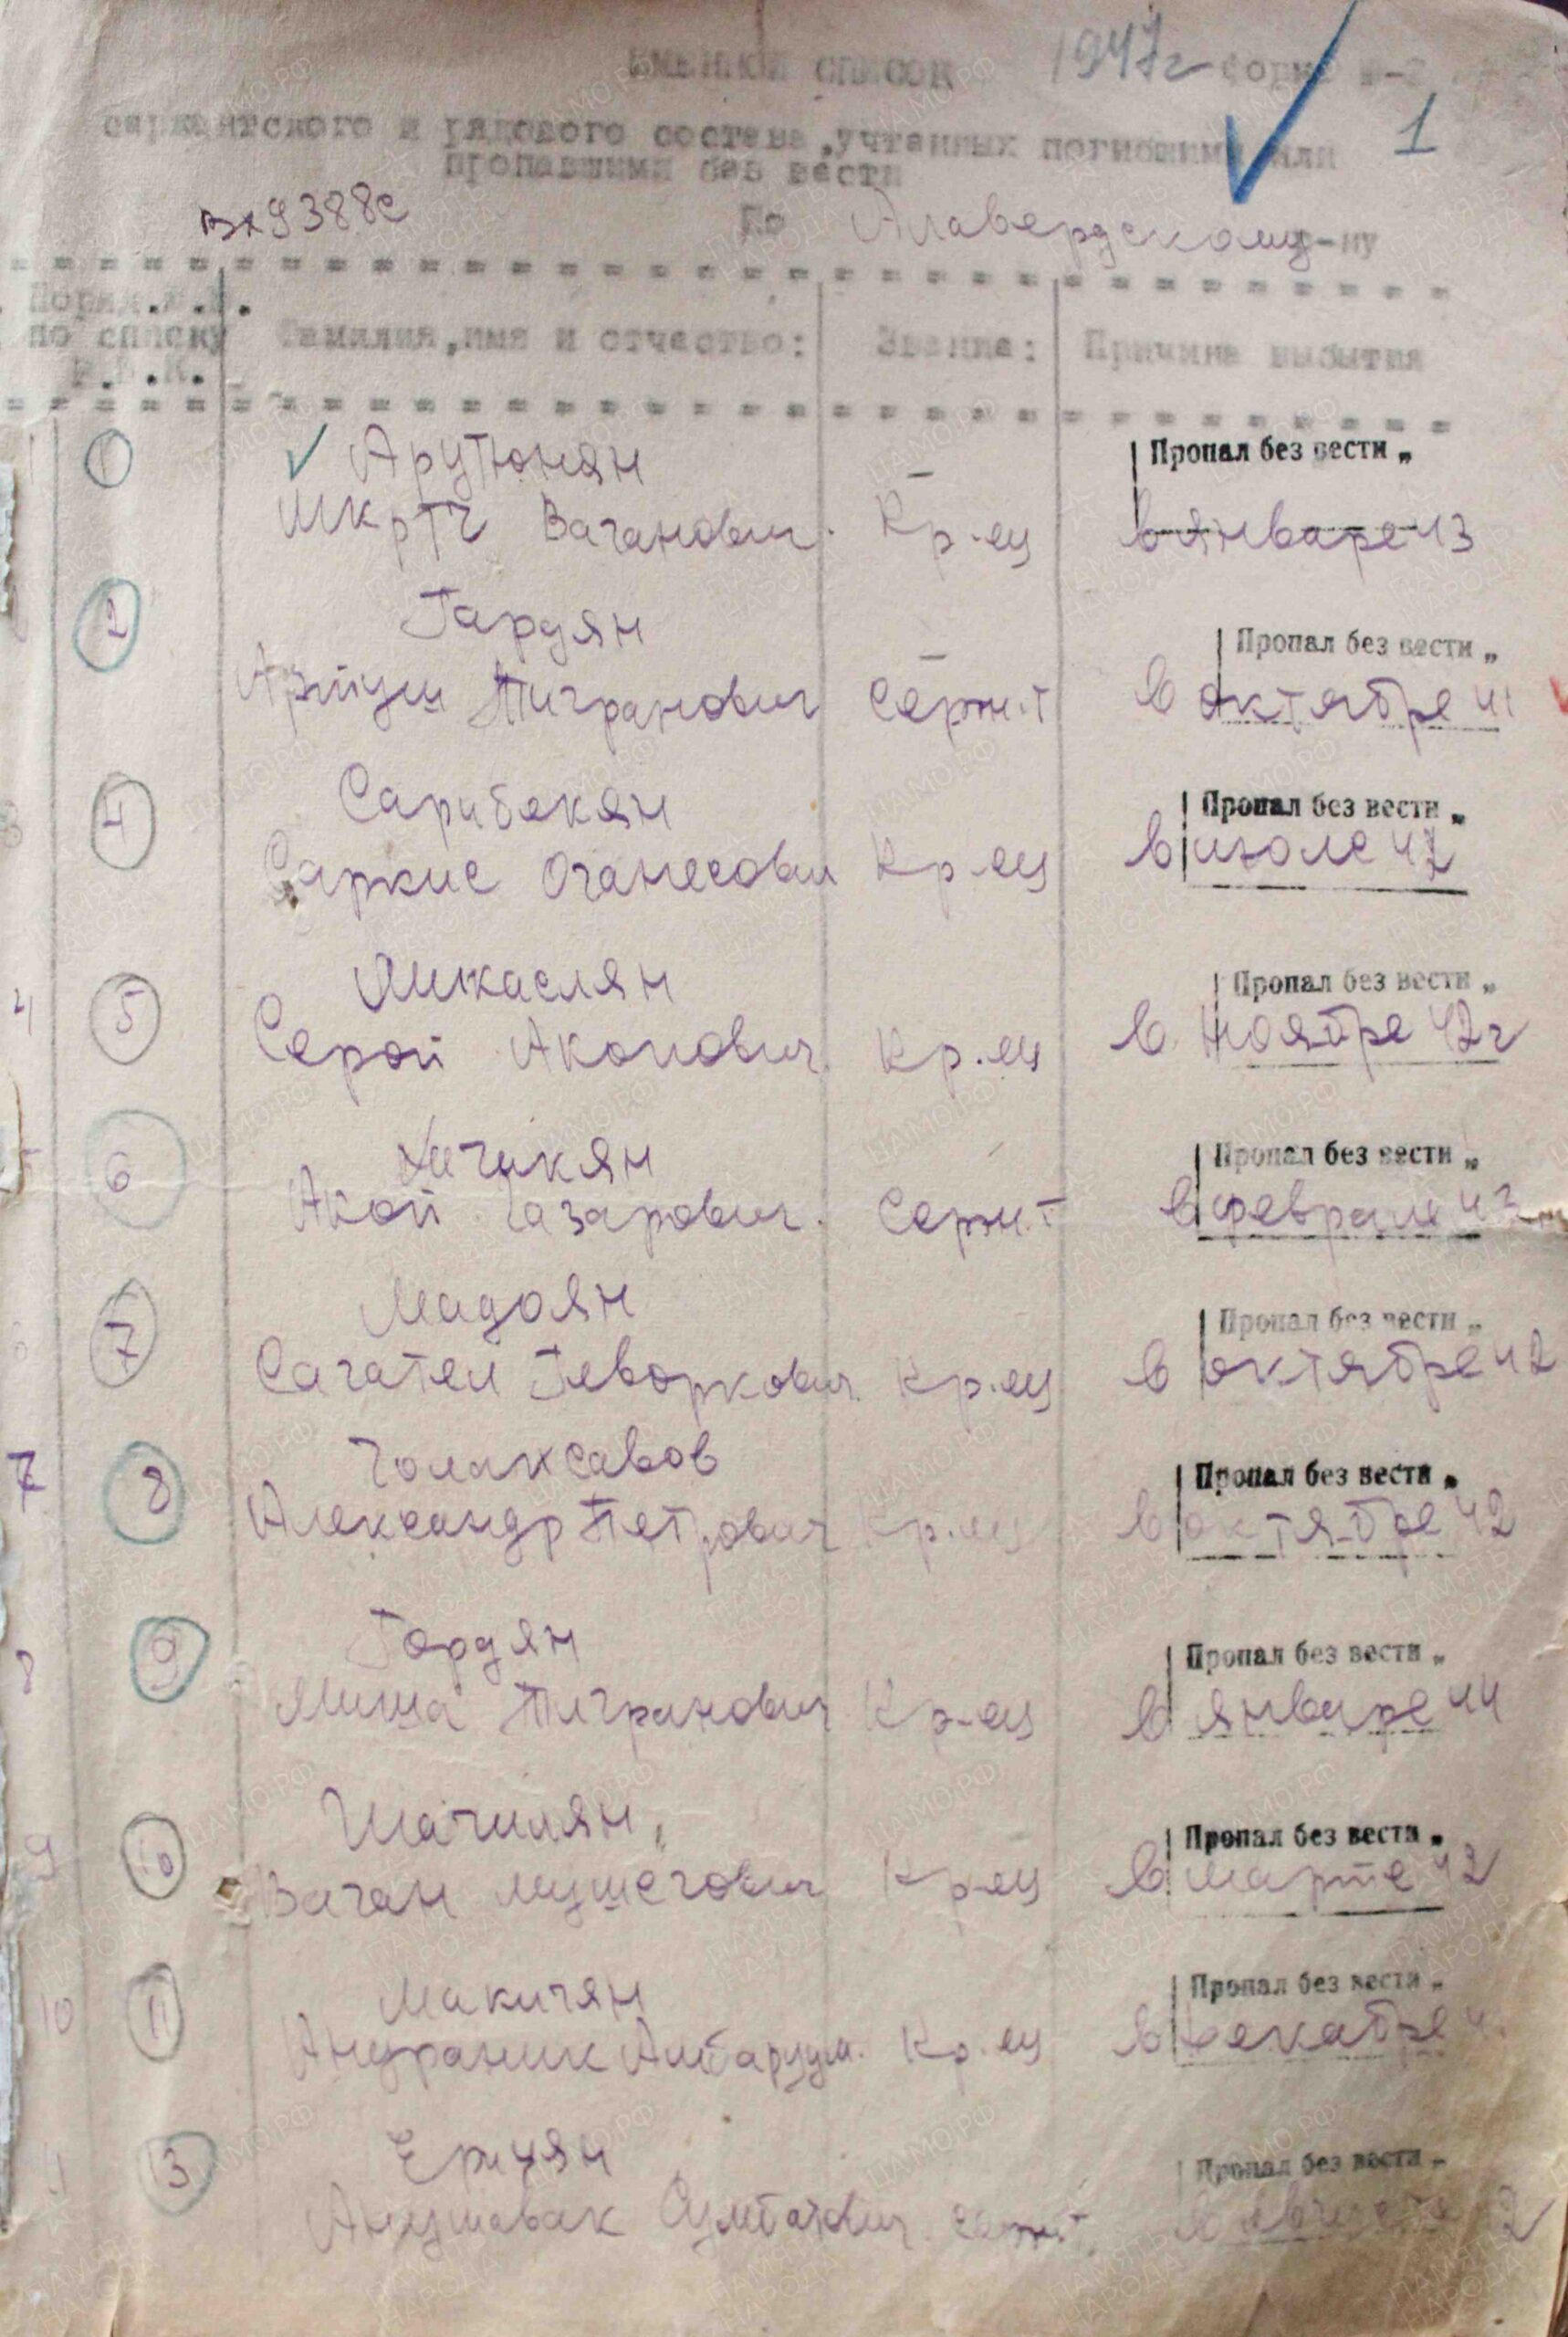 ИМЕННОЙ СПИСОК 1947г форма
1
сержантского и рядового состава, учтенных погибшими или
пропавшими без вести
Вх9388с
по Алавердскому р-ну
Поряд.№№.
по списку
Р.В.К.
Фамилия, имя и отчество:
Звание:
Причина выбытия
1
Арутюнян
Мкртч Ваганович.
Кр-ец
Пропал без вести „
в январе 43
2
Гардян
Тигранович
Серж.т
Пропал без вести „
в октябре 41
4
Сарибекян
Саркис Оганесович
Кр-ец
Пропал без вести „
в июле 42
4
5
Микаелян
Сероп Акопович
Кр-ец
Пропал без вести „
в ноябре 42г
6
Хачикян
Акоп Газарович.
Серж.т
Пропал без вести „
в феврале 43
7
Мадоян
Сагател Геворкович
Кр-ец
Пропал без вести „
в октябре 42
7
8
Александр Петрович
Кр-ец
Пропал без вести „
в октябре 42
8
9
Гардян
Миша Тигранович
Кр-ец
Пропал без вести „
в январе 44
9
10
Шагинян
Ваган Мушегович
Кр-ец
Пропал без вести „
в марте 42
10
11
Макичян
Андраник
Кр-ец
Пропал без вести „
в декабре
13
Ерицян
Анушаван Сумбатович
серж.т
Пропал без вести „
в августе 42